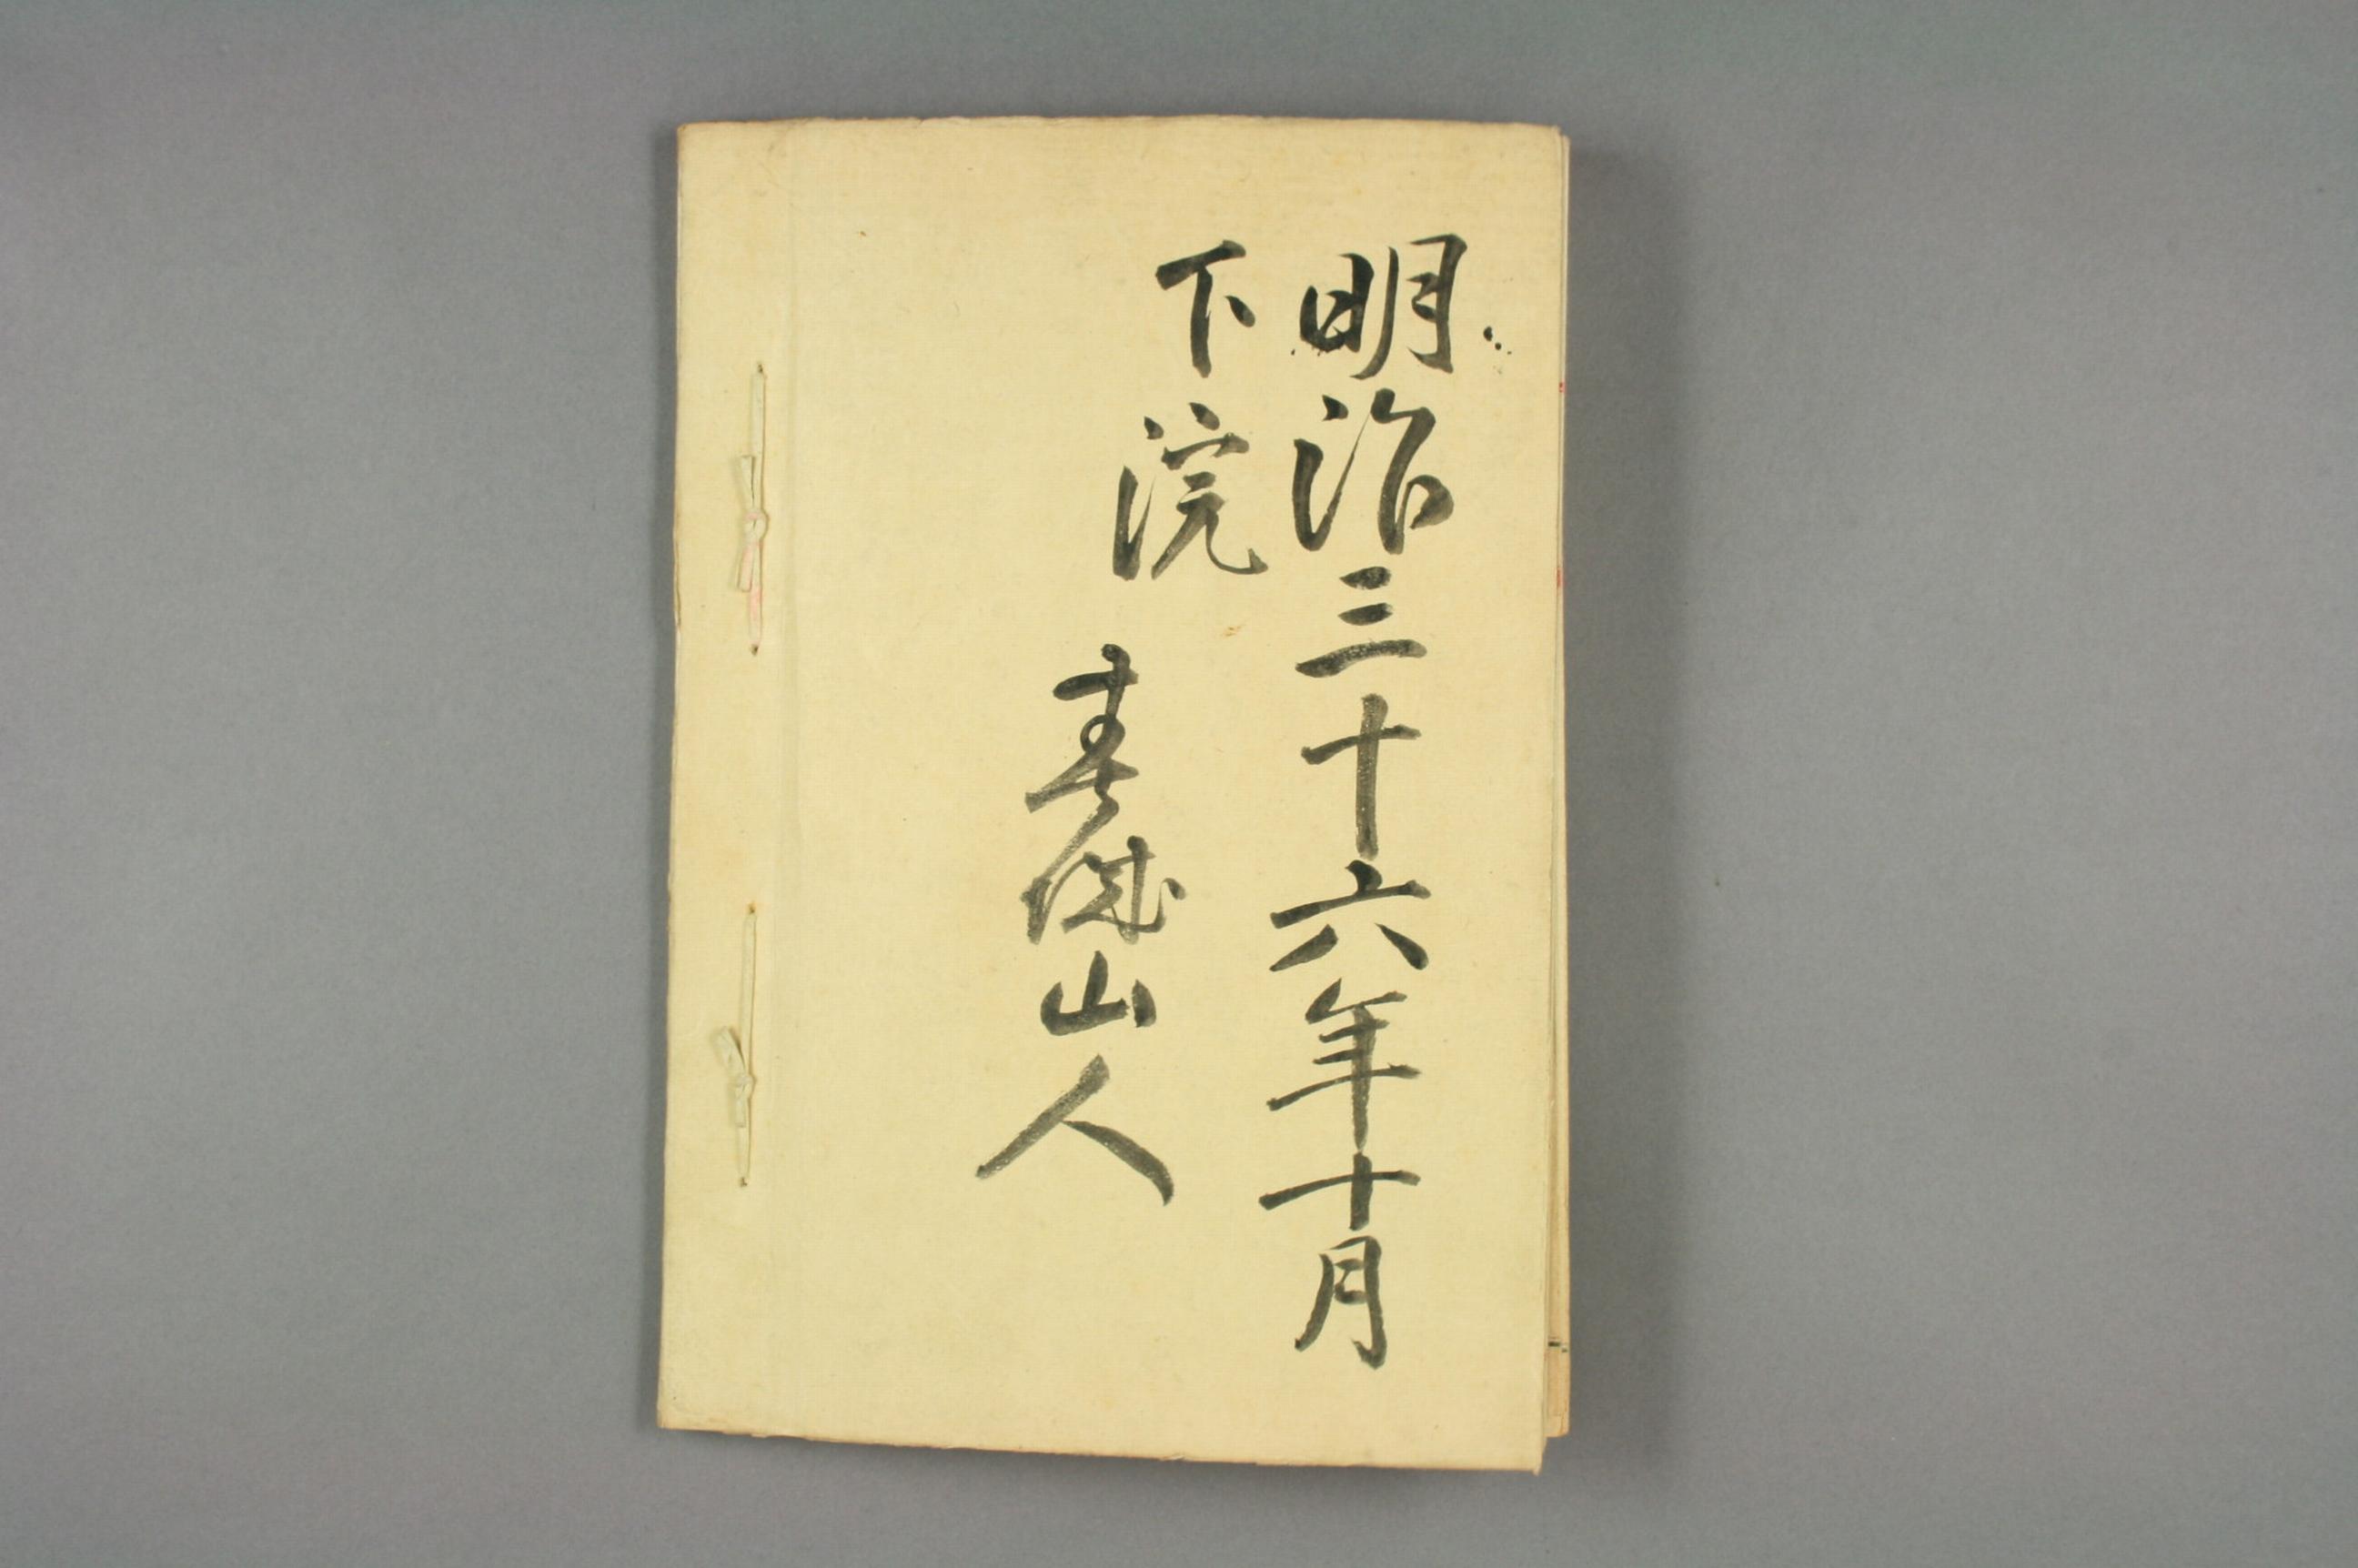 明治三十六年十月
下浣
春城山人